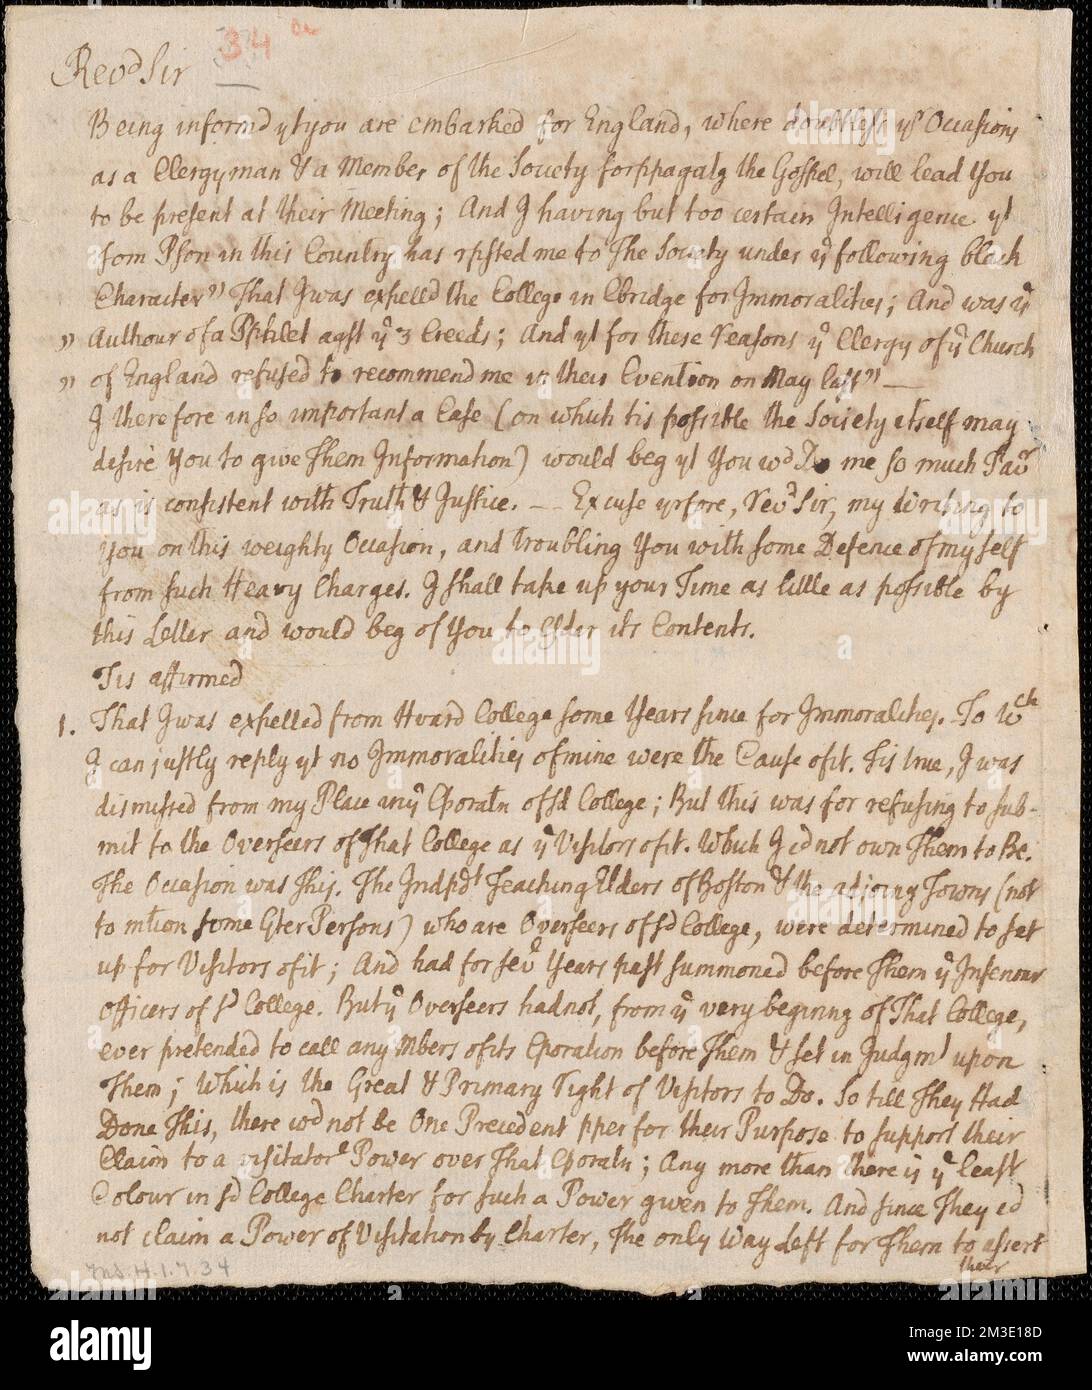 34
Revd Sir
Being informd yt you are embarked for England, where doubtless yr Occasions
as a Clergyman & a Member of the Society for ppagatg the Gospel, will lead You
to be present at their Meeting; And I having but too certain Intelligence yt
som Pson in this Country has rpsted me to The Society under ye following black
Character" That I was expelled the College in Cbridge for Immoralities; And was ye
" Authour of a Pphlet agst ye 3 Creeds; And yt for these reasons ye Clergy of ye Church
" of England refused to recommend me in their Cvention on May last" —
I therefore in so important a Case (on which tis possible the Society itself may
desire You to give Them Information) would beg yt You wd Do me so much Favr
as is consistent with Truth & Justice. — Excuse yrfore, Revd Sir, my writing to
You on this weighty Occasion, and troubling You with some Defence of my self
from such Heavy Charges. I shall take up your Time as little as possible by
this Letter and would beg of You to Csider its Contents.
Tis affirmed
1. That I was expelled from Hvard College some Years since for Immoralities. To wch
I can justly reply yt no Immoralities of mine were the Cause of it. Tis true, I was
dismissed from my Place in ye Cporatn of sd College; But this was for refusing to sub-
mit to the Overseers of That College as ye Visitors of it. Which I cd not own Them to Be.
The Occasion was This. The Indpdt Teaching Elders of Boston & the adjoing Towns (not
to mtion some Other Persons) who are Overseers of sd College, were determined to set
up for Visitors of it; And had for sevl Years past summoned before Them ye Inferiour
Officers of sd College. But ye Overseers had not, from ye very begining of That College,
ever pretended to call any Mbers of its Cporation before Them & set in Judgmt upon
Them; Which is the Great & Primary Right of Visitors to Do. So till They Had
Done This, there wd not be One Precedent pper for their Purpose to support their
Claim to a visitatorl Power over That Cporatn; Any more than there is ye least
Colour in sd College Charter for such a Power given to Them. And since They cd
not claim a Power of Visitation by Charter, The only Way Left for Them to assert
their
Ms. H. 1. 7. 34
alamy
a
Image ID: 2M3E18D
www.alamy.com